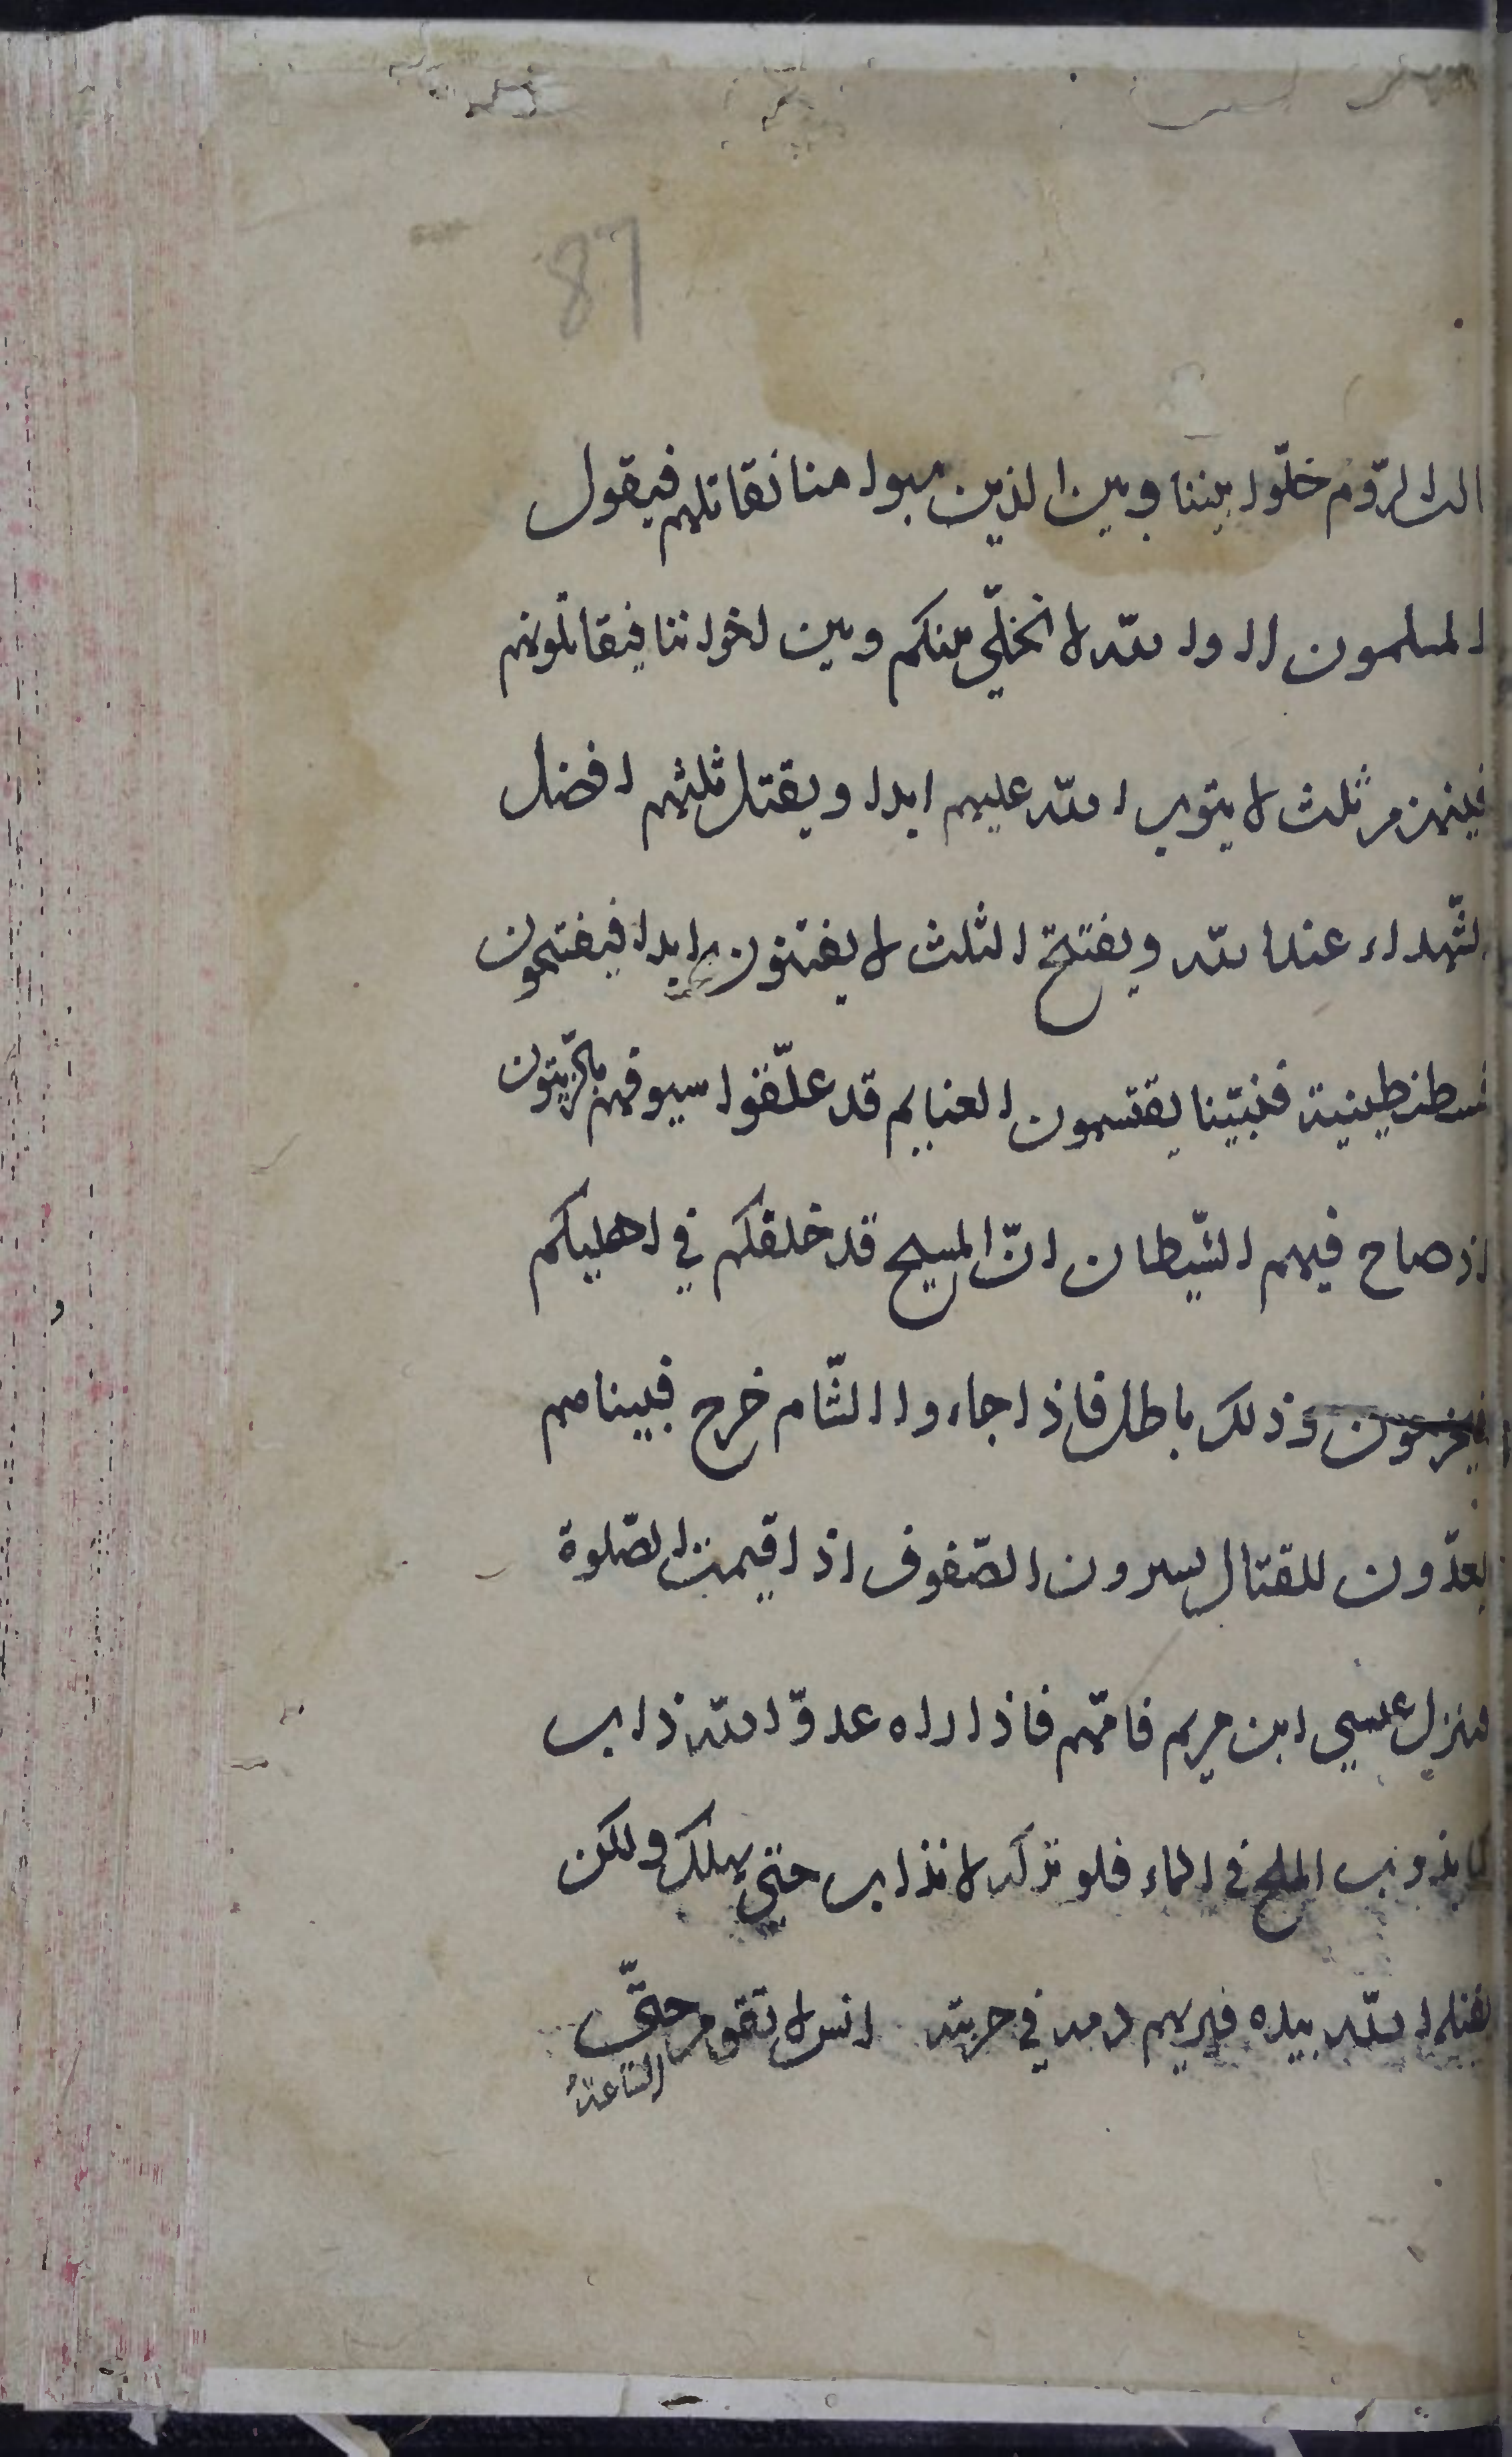 87
الت الرّوم خلّوا بيننا وبين الذين سبوا منا نقاتلهم فيقول
المسلمون لا والله لا نخلّي بينكم وبين اخواننا فيقاتلونهم
فينهزم ثلث لا يتوب الله عليهم ابدا ويقتل ثلثهم افضل
الشّهداء عند الله ويفتتح الثلث لا يفتنون ابدا فيفتحون
قسطنطينية فبينا يقتسمون الغنايم قد علّقوا سيوفهم بالزّيتون
اذ صاح فيهم الشّيطان انّ المسيح قد خلفكم في اهليكم
فيخرجون وذلك باطل فاذا جاءوا الشّام خرج فبينا هم
يعدّون للقتال يسوون الصّفوف اذ اقيمت الصّلوة
فينزل عيسى ابن مريم فامّهم فاذا راه عدوّ الله ذاب
كما يذوب الملح في الماء فلو تركه لانذاب حتى يهلك ولكن
يقتله الله بيده فيريهم دمه في حربته انس لا تقوم حتّى
السّاعة